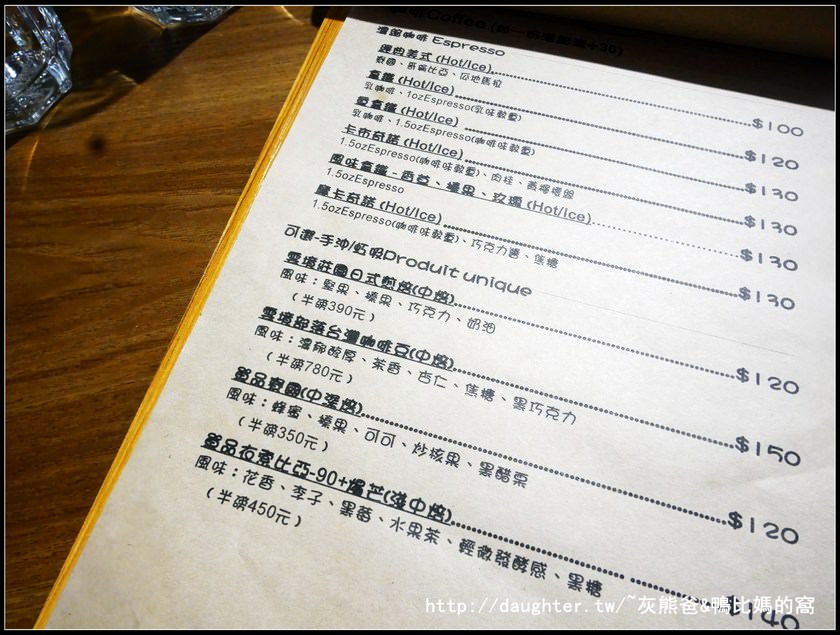 Coffee
濃縮咖啡 Espresso
經典美式 (Hot/Ice) $100
泰國、哥倫比亞、瓜地馬拉
拿鐵 (Hot/Ice) $120
乳咖啡、1ozEspresso(乳味較重)
愛拿鐵 (Hot/Ice) $130
乳咖啡、1.5ozEspresso(咖啡味較重)
卡布奇諾 (Hot/Ice) $130
1.5ozEspresso(咖啡味較重)、肉桂、黃檸檬
風味拿鐵-香草、榛果、玫瑰 (Hot/Ice) $130
1.5ozEspresso
摩卡奇諾 (Hot/Ice) $130
1.5ozEspresso(咖啡味較重)、巧克力醬、焦糖
可選-手沖/虹吸Produit unique
雲境莊園日式煎焙(中焙) $120
風味：堅果、榛果、巧克力、奶油
（半磅390元）
雲境部落台灣咖啡豆(中焙) $150
風味：濃郁醇厚、茶香、杏仁、焦糖、黑巧克力
（半磅780元）
登品泰國(中深焙) $120
風味：蜂蜜、榛果、可可、炒核果、黑醋栗
（半磅350元）
登品衣索比亞-90+(淺中焙) $140
風味：花香、李子、黑莓、水果茶、輕微發酵感、黑糖
（半磅450元）
http://daughter.tw/~灰熊爸&鴨比媽的窩